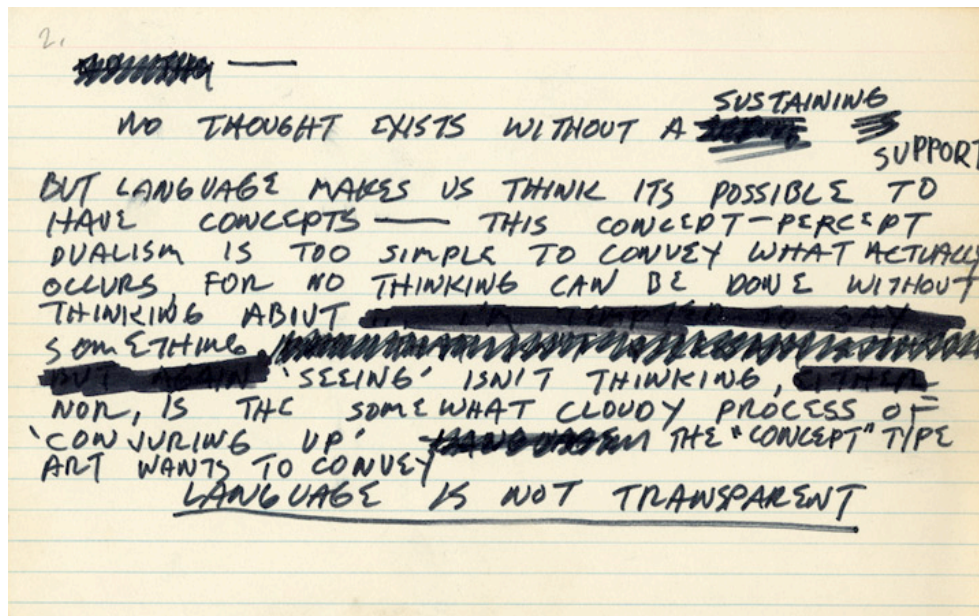 2.
—
SUSTAINING
NO THOUGHT EXISTS WITHOUT A
SUPPORT
BUT LANGUAGE MAKES US THINK ITS POSSIBLE TO
HAVE CONCEPTS — THIS CONCEPT-PERCEPT
DUALISM IS TOO SIMPLE TO CONVEY WHAT ACTUALLY
OCCURS, FOR NO THINKING CAN BE DONE WITHOUT
THINKING ABIUT I'M TEMPTED TO SAY
SOMETHING
BUT AGAIN 'SEEING' ISN'T THINKING, EITHER
NOR, IS THE SOMEWHAT CLOUDY PROCESS OF
'CONJURING UP' LANGUAGE THE "CONCEPT" TYPE
ART WANTS TO CONVEY
LANGUAGE IS NOT TRANSPARENT